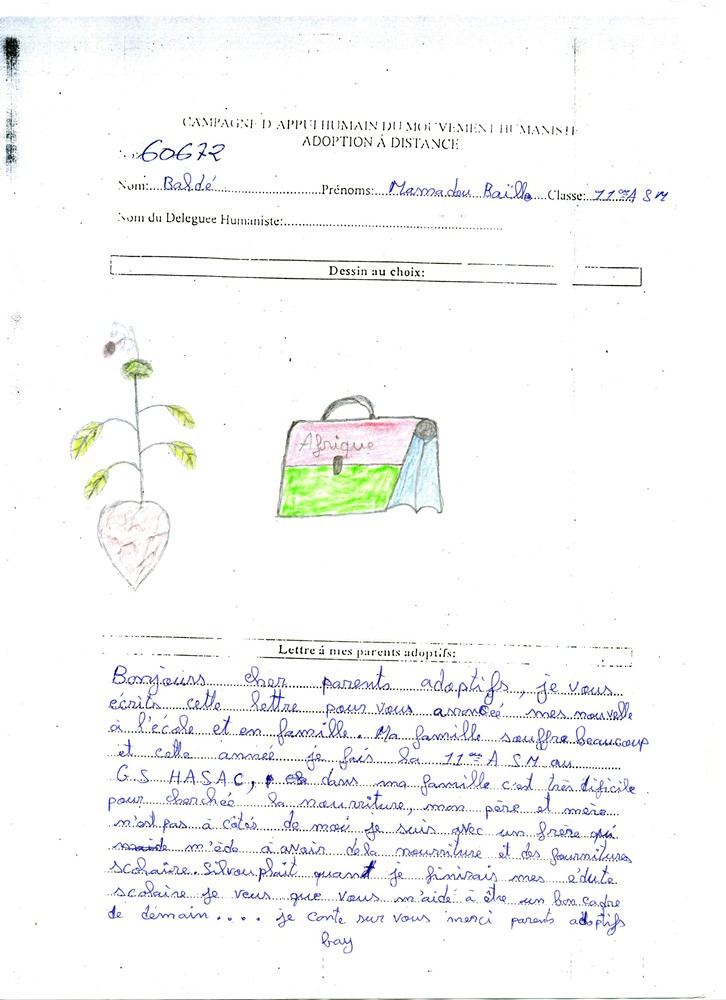 CAMPAGNE D'APPUI HUMAIN DU MOUVEMENT HUMANISTE
ADOPTION À DISTANCE
N°: 60672
Nom:....Baldé....................Prénoms:...Mamadou Baïllo...Classe: 11ème A SM
Nom du Deleguee Humaniste:...................................................
Dessin au choix:
Afrique
Lettre à mes parents adoptifs:
Bonjours cher parents adoptifs, je vous
écrits cette lettre pour vous annoncé mes nouvelle
à l'école et en famille. Ma famille souffre beaucoup
et cette année je fais la 11ème A SM au
G.S HASAC, dans ma famille c'est très dificile
pour cherchée la nourriture, mon père et mère
n'est pas à côtés de moi je suis avec un frere qui
m'ède à avoir de la nourriture et des fournitures
scolaire. Silvouplait quant je finirais mes édute
scolaire je veus que vous m'aidé à être un bon cadre
de démain.... je conte sur vous merci parents adoptifs
bay